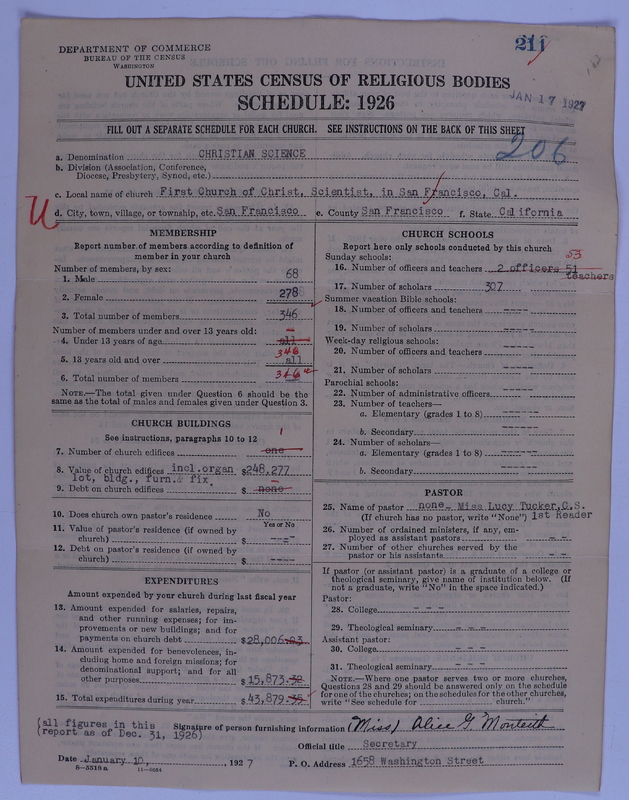 DEPARTMENT OF COMMERCE
BUREAU OF THE CENSUS
WASHINGTON
211
UNITED STATES CENSUS OF RELIGIOUS BODIES
SCHEDULE: 1926
JAN 17 1927
FILL OUT A SEPARATE SCHEDULE FOR EACH CHURCH. SEE INSTRUCTIONS ON THE BACK OF THIS SHEET
206
a. Denomination CHRISTIAN SCIENCE
b. Division (Association, Conference,
Diocese, Presbytery, Synod, etc.)
c. Local name of church First Church of Christ, Scientist, in San Francisco, Cal.
U
d. City, town, village, or township, etc. San Francisco e. County San Francisco f. State California
MEMBERSHIP
Report number of members according to definition of
member in your church
Number of members, by sex:
1. Male 68
2. Female 278
3. Total number of members 346
Number of members under and over 13 years old:
4. Under 13 years of age all
346
5. 13 years old and over all
6. Total number of members 346
NOTE.—The total given under Question 6 should be the
same as the total of males and females given under Question 3.
CHURCH BUILDINGS
See instructions, paragraphs 10 to 12
1
7. Number of church edifices one
8. Value of church edifices incl. organ $248,277
lot, bldg., furn.& fix.
9. Debt on church edifices $ none
10. Does church own pastor's residence No
Yes or No
11. Value of pastor's residence (if owned by
church) $ ----
12. Debt on pastor's residence (if owned by
church) $ ----
EXPENDITURES
Amount expended by your church during last fiscal year
13. Amount expended for salaries, repairs,
and other running expenses; for im-
provements or new buildings; and for
payments on church debt $28,006.03
14. Amount expended for benevolences, in-
cluding home and foreign missions; for
denominational support; and for all
other purposes $15,873.32
15. Total expenditures during year $43,879.35
CHURCH SCHOOLS
Report here only schools conducted by this church
Sunday schools:
53
16. Number of officers and teachers 2 officers 51
teachers
17. Number of scholars 307
Summer vacation Bible schools:
18. Number of officers and teachers -----
19. Number of scholars -----
Week-day religious schools:
20. Number of officers and teachers -----
21. Number of scholars -----
Parochial schools:
22. Number of administrative officers -----
23. Number of teachers—
a. Elementary (grades 1 to 8) -----
b. Secondary -----
24. Number of scholars—
a. Elementary (grades 1 to 8) -----
b. Secondary -----
PASTOR
25. Name of pastor none. Miss Lucy Tucker, C.S.
(If church has no pastor, write "None") 1st Reader
26. Number of ordained ministers, if any, em-
ployed as assistant pastors - -
27. Number of other churches served by the
pastor or his assistants - -
If pastor (or assistant pastor) is a graduate of a college or
theological seminary, give name of institution below. (If
not a graduate, write "No" in the space indicated.)
Pastor:
28. College - - -
29. Theological seminary - - -
Assistant pastor:
30. College - - -
31. Theological seminary - - -
NOTE.—Where one pastor serves two or more churches,
Questions 28 and 29 should be answered only on the schedule
for one of the churches; on the schedules for the other churches,
write "See schedule for church."
(all figures in this
report as of Dec. 31, 1926)
Signature of person furnishing information (Miss) Alice G. Monteith
Official title Secretary
Date January 10, 1927
P. O. Address 1658 Washington Street
8—5518a 11—9054